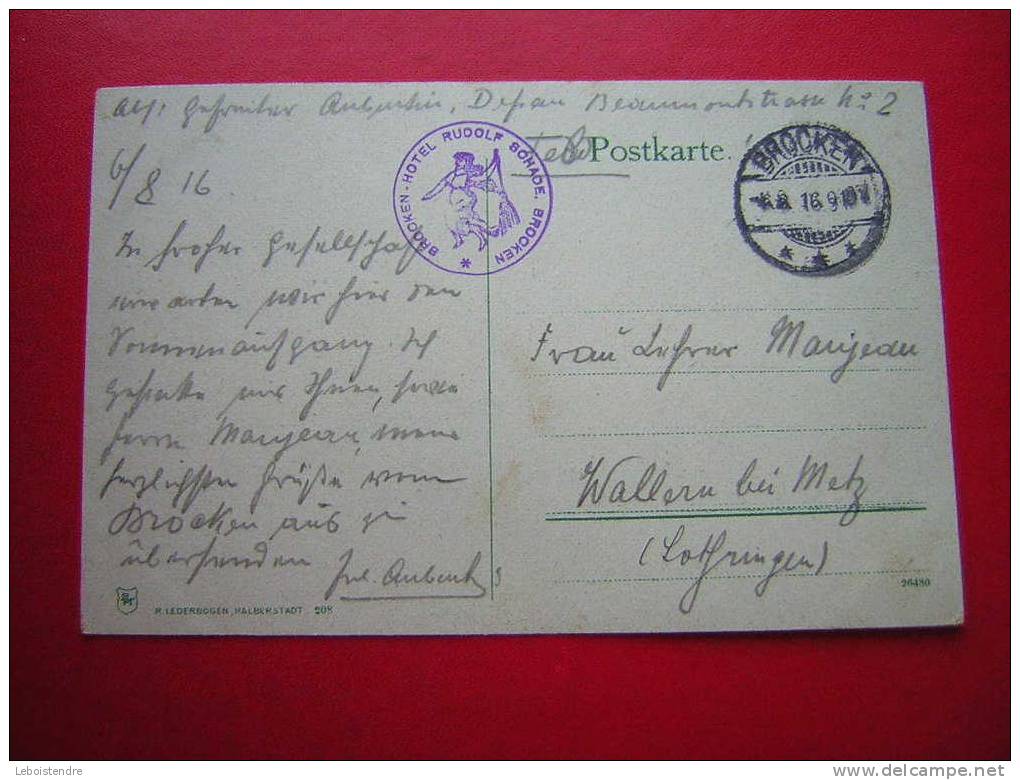 Abs: Gefreiter Aubertin, Dessau Beaumontstrasse No 2
Feld Postkarte.
6/8 16.
BROCKEN-HOTEL RUDOLF SCHADE, BROCKEN
BROCKEN
8. 16. 9-10V
In froher Gesellschaft
erwarten wir hier den
Sonnenaufgang. Ich
gestatte mir Ihnen, sowie
Herrn Manjean, meine
herzlichsten Grüße vom
Brocken aus zu
übersenden
Jul. Aubertin
Frau Lehrer Manjean
Wallern bei Metz
(Lothringen)
R. LEDERBOGEN, HALBERSTADT. 208
26480
Leboistendre
delcampe.net